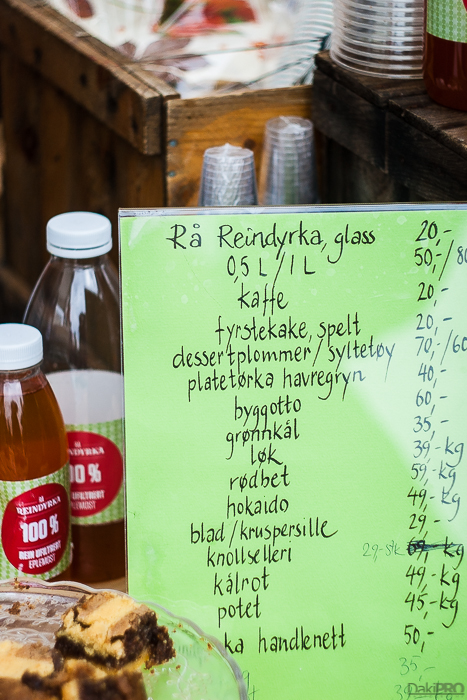 Rå Reindyrka, glass 20,-
0,5 L / 1 L 50,-/80
kaffe 20,-
fyrstekake, spelt 20,-
dessertplommer/syltetøy 70,-/60
platetørka havregryn 40,-
byggotto 60,-
grønnkål 35,-
løk 39,-kg
rødbet 59,-kg
hokaido 49,-kg
blad/kruspersille 29,-
knollselleri 29,-stk kg
kålrot 49,-kg
potet 45,-kg
ka handlenett 50,-
35,-
REINDYRKA
100 %
REIN UFILTRERT
EPLEMOST
REINDYRKA
0 %
UFILTRERT
EPLEMOST
DakiPRO